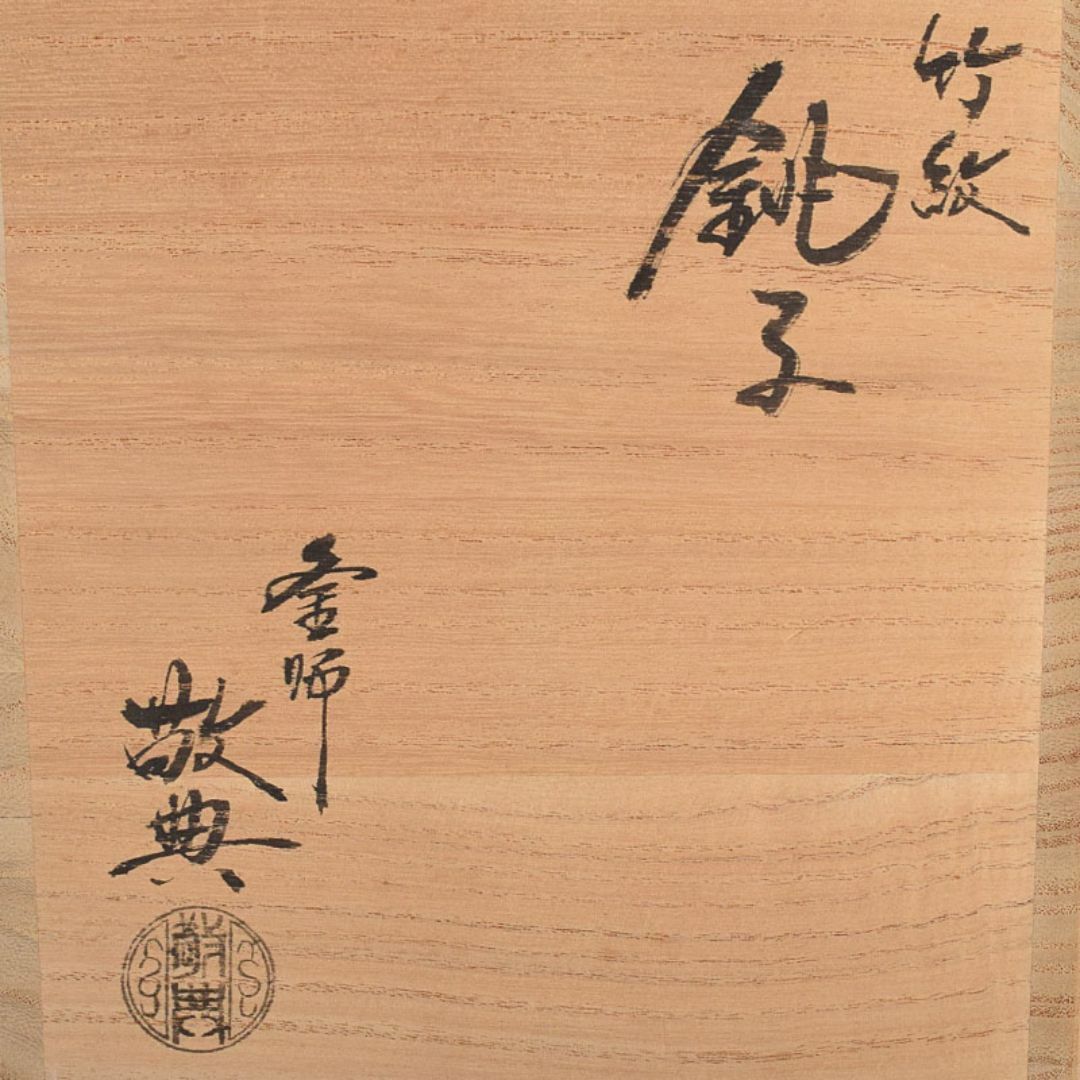 竹紋
銚子
釜師
敬典
敬典